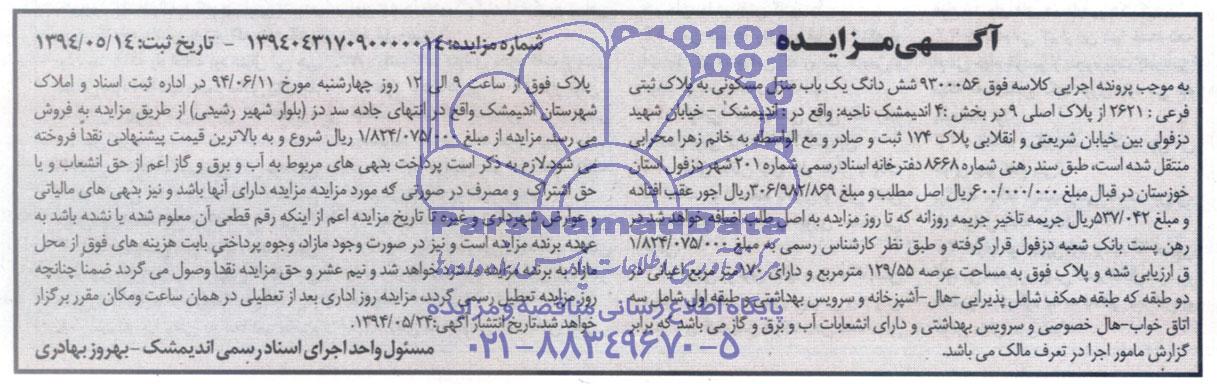 آگهی مزایده
شماره مزایده: ۱۳۹۴۰۴۳۱۷۰۹۰۰۰۰۰۱۴ - تاریخ ثبت: ۱۳۹۴/۰۵/۱۴
به موجب پرونده اجرایی کلاسه فوق ۹۳۰۰۰۵۶ شش دانگ یک باب منزل مسکونی به پلاک ثبتی
فرعی : ۲۶۲۱ از پلاک اصلی ۹ در بخش ۴: اندیمشک ناحیه: واقع در : اندیمشک - خیابان شهید
دزفولی بین خیابان شریعتی و انقلابی پلاک ۱۷۴ ثبت و صادر و مع الواسطه به خانم زهرا محرابی
منتقل شده است، طبق سند رهنی شماره ۸۶۶۸ دفترخانه اسناد رسمی شماره ۲۰۱ شهر دزفول استان
خوزستان در قبال مبلغ ۶۰۰/۰۰۰/۰۰۰ریال اصل مطلب و مبلغ ۳۰۶/۹۸۲/۸۶۹ریال اجور عقب افتاده
و مبلغ ۵۳۷/۰۴۲ریال جریمه تاخیر جریمه روزانه که تا روز مزایده به اصل طلب اضافه خواهد شد در
رهن پست بانک شعبه دزفول قرار گرفته و طبق نظر کارشناس رسمی به مبلغ ۱/۸۲۴/۰۷۵/۰۰۰
ق ارزیابی شده و پلاک فوق به مساحت عرصه ۱۲۹/۵۵ مترمربع و دارای ۱۷۰متر مربع اعیانی در
دو طبقه که طبقه همکف شامل پذیرایی-هال-آشپزخانه و سرویس بهداشتی و طبقه اول شامل سه
اتاق خواب-هال خصوصی و سرویس بهداشتی و دارای انشعابات آب و برق و گاز می باشد که برابر
گزارش مامور اجرا در تعرف مالک می باشد.
پلاک فوق از ساعت ۹ الی ۱۲ روز چهارشنبه مورخ ۹۴/۰۶/۱۱ در اداره ثبت اسناد و املاک
شهرستان اندیمشک واقع در انتهای جاده سد دز (بلوار شهیر رشیدی) از طریق مزایده به فروش
می رسد. مزایده از مبلغ ۱/۸۲۴/۰۷۵/۰۰۰ ریال شروع و به بالاترین قیمت پیشنهادی نقدا فروخته
می شود.لازم به ذکر است پرداخت بدهی های مربوط به آب و برق و گاز اعم از حق انشعاب و یا
حق اشتراک و مصرف در صورتی که مورد مزایده مزایده دارای آنها باشد و نیز بدهی های مالیاتی
و عوارض شهرداری و غیره تا تاریخ مزایده اعم از اینکه رقم قطعی آن معلوم شده یا نشده باشد به
عهده برنده مزایده است و نیز در صورت وجود مازاد، وجوه پرداختی بابت هزینه های فوق از محل
مازاد به برنده مزایده مسترد خواهد شد و نیم عشر و حق مزایده نقداً وصول می گردد ضمناً چنانچه
روز مزایده تعطیل رسمی گردد، مزایده روز اداری بعد از تعطیلی در همان ساعت ومکان مقرر برگزار
خواهد شد.تاریخ انتشار آگهی:۱۳۹۴/۰۵/۲۴.
مسئول واحد اجرای اسناد رسمی اندیمشک -بهروز بهادری
ParsNamadData
پایگاه اطلاع رسانی مناقصه و مزایده
۰۲۱-۸۸۳۴۹۶۷۰-۵